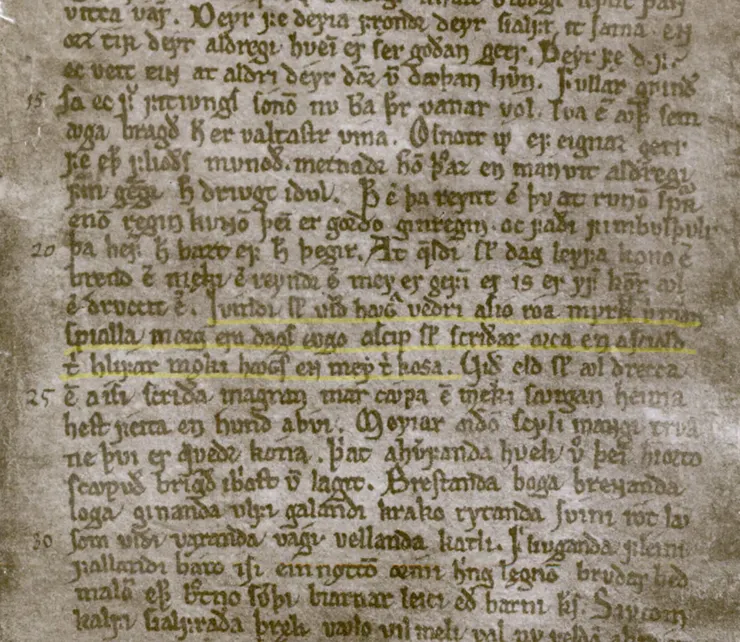 vitta var. Deyr fe deyia frondr deyr sialfr it sama. en
orz tir deyr aldregi hveī er ser godan getr. Deyr fe d. f.
ec veit eiɴ at aldri deyr dōr ū dꜹþan hūn. Fullar grindr
15 sa ec f͛ fitivngs sonō nu b͛a þr̄ vanar vol. sva ē ꜹþr sem
ꜹga bragð h̄ er valtastr vina. Osnotr ᛘ er eignaz getr
fe eþ̄ flioðs mvnoð. metnadr hō þ͛az en manvit aldregi
fm̄ gēgr h̄ drivgt i dul. Þ̄ ē þa reynt ē þv at rvnō spyrr
enō regin kunnō þeī er gordo ginregin. oc faði fimbulþulr
20 þa hef͛ h̄ bazt ef h̄ þegir. At q̄ldi sl̄ dag leyfa kono ē
brend ē mæki ē reyndr ē mey er gefin er is er yf͛ kōr ꜹl
ē druccit ē. Ivindi sl̄ við hꜹGva veðri asio roa myrkri við man
spialla morg ero dags ꜹgo ascip sl̄ scriðar orca en asciold
t̄ hlifar mæki hꜹGs en mey t̄ kosa. Við eld sl̄ ꜹl drecca
25 ē aisi scriða magran mar cꜹpa ē mæki sꜹrgan heima
hest feita en hund abvi. Meyiar orðō scyli mangi trva
ne þvi er qveðr kona. þat ahv͛fanda hveli v͛o þeī hiorto
scopuð brigð ibriost ū lagit. Brestanda boga breɴanda
loga ginanda ulfi galandi krako rytanda svini rot lꜹ
30 som viði vaxanda vagi vellanda katli. Fliuganda fleini
fallandi baro isi einnætto ormi h͛ng legnō bruðar beð
malō eþ̄ b͛tno sv͛þi biarnar leici eð barni k̄s. Siucom
kalfi sialfraða þræli vꜹlo vil mæli val